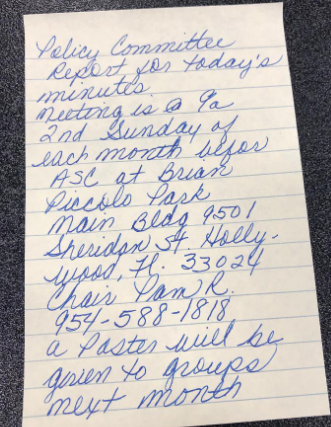 Policy Committee
Report for today's
minutes
meeting is @ 9a
2nd Sunday of
each month befor
ASC at Brian
Piccolo Park
Main Bldg 9501
Sheridan St. Holly-
wood, Fl. 33024
Chair Pam R.
954-588-1818
a Poster will be
given to groups
next month